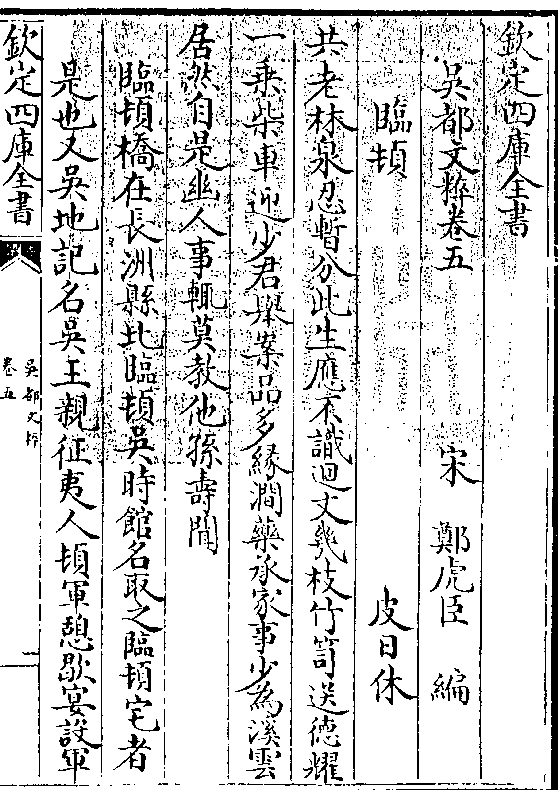 欽定四庫全書
吳都文粹卷五
宋 鄭虎臣 編
臨頓
皮日休
共老林泉忍暫分此生應不識迴文幾枝竹笥送德耀
一乗柴車迎少君舉案品多緣澗藥承家事少為溪雲
居然自是幽人事輒莫教他孫壽聞
臨頓橋在長洲縣北臨頓吳時館名取之臨頓宅者
是也又吳地記名吳王親征夷人頓軍憩歇宴設軍
欽定四庫全書
吳都文粹
卷五
一